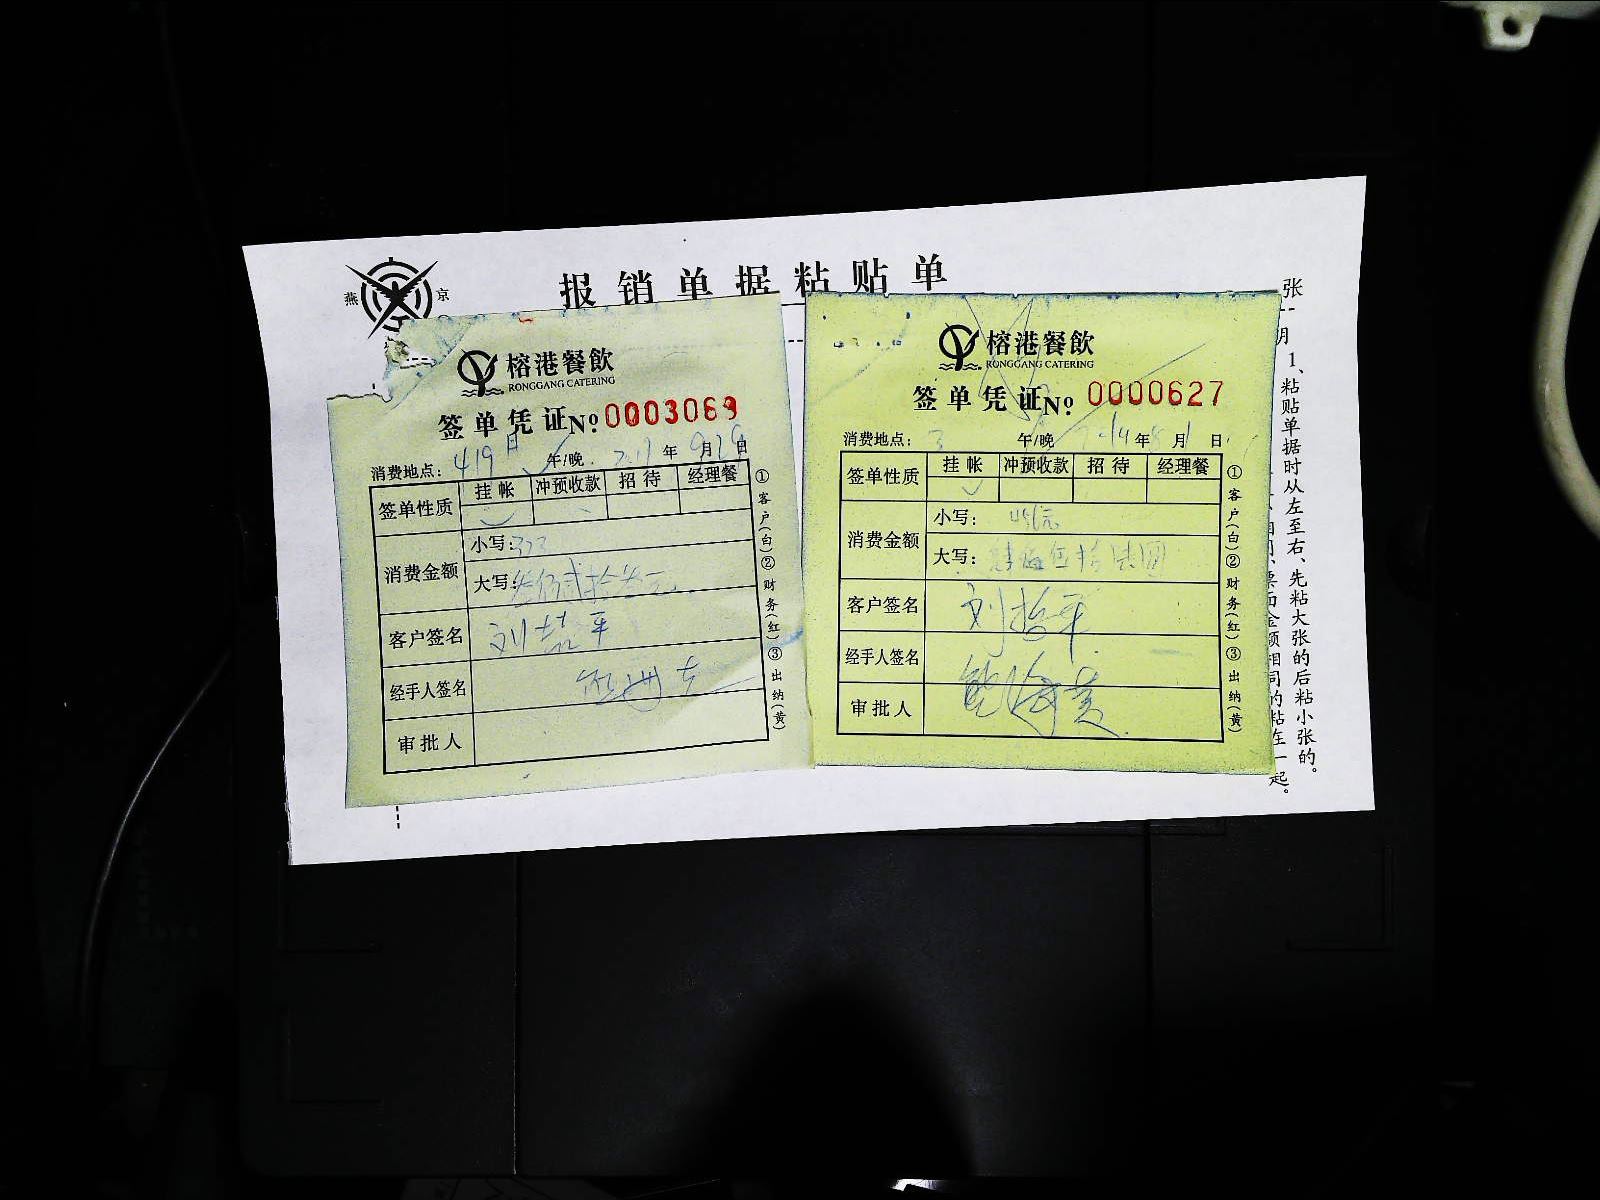 燕 京
报销单据粘贴单
榕港餐飲
RONGGANG CATERING
签单凭证№ 0003069
消费地点: 419 午/晚 年 9月29日
签单性质 挂帐 冲预收款 招待 经理餐
消费金额 小写:
大写:
客户签名 刘喆平
经手人签名
审批人
①客户(白)②财务(红)③出纳(黄)
榕港餐飲
RONGGANG CATERING
签单凭证№ 0000627
消费地点: 3 午/晚 年 8月1日
签单性质 挂帐 冲预收款 招待 经理餐
消费金额 小写: 456元
大写:
客户签名
经手人签名
审批人
①客户(白)②财务(红)③出纳(黄)
张
明
1、粘贴单据时从左至右、先粘大张的后粘小张的。
票面金额相同的粘在一起。